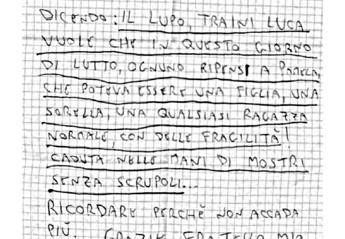 DICENDO: IL LUPO, TRAINI LUCA
VUOLE CHE IN QUESTO GIORNO
DI LUTTO, OGNUNO RIPENSI A PAMELA,
CHE POTEVA ESSERE UNA FIGLIA, UNA
SORELLA, UNA QUALSIASI RAGAZZA
NORMALE, CON DELLE FRAGILITÀ!
CADUTA NELLE MANI DI MOSTRI
SENZA SCRUPOLI...
RICORDARE PERCHÈ NON ACCADA
PIÙ. GRAZIE FRATELLO MIO